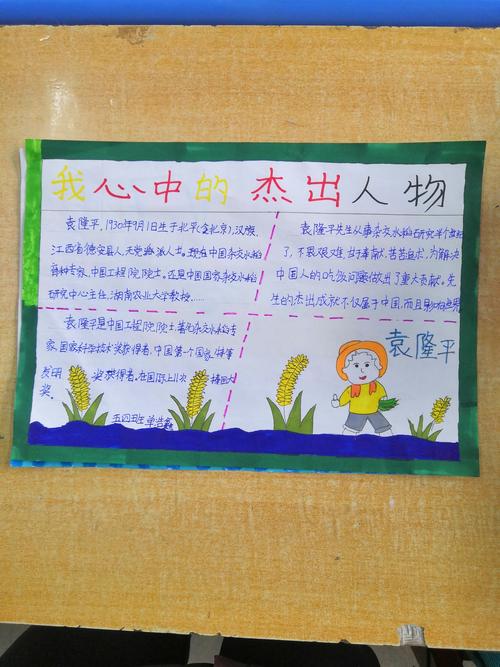 我心中的杰出人物
袁隆平,1930年9月1日生于北平(今北京),汉族,
江西省德安县人,无党派人士。现在中国杂交水稻
育种专家,中国工程院院士。还是中国国家杂交水稻
研究中心主任,湖南农业大学教授......
袁隆平先生从事杂交水稻研究半个世纪
了,不畏艰难,甘于奉献,苦苦追求,为解决
中国人的吃饭问题做出了重大贡献。先
生的杰出成就不仅属于中国,而且影响世界
袁隆平是中国工程院院士,著名杂交水稻专
家,国家科学技术奖获得者,中国第一个国家特等
发明奖获得者。在国际上11次
袁隆平
五四班